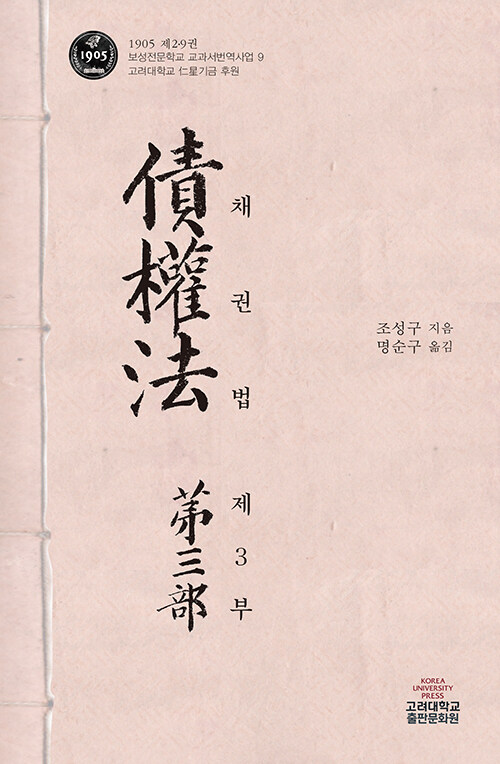 1905
1905 제2·9권
보성전문학교 교과서번역사업 9
고려대학교 仁星기금 후원
債權法
채권법
第三部
제3부
조성구 지음
명순구 옮김
KOREA
UNIVERSITY
PRESS
고려대학교
출판문화원